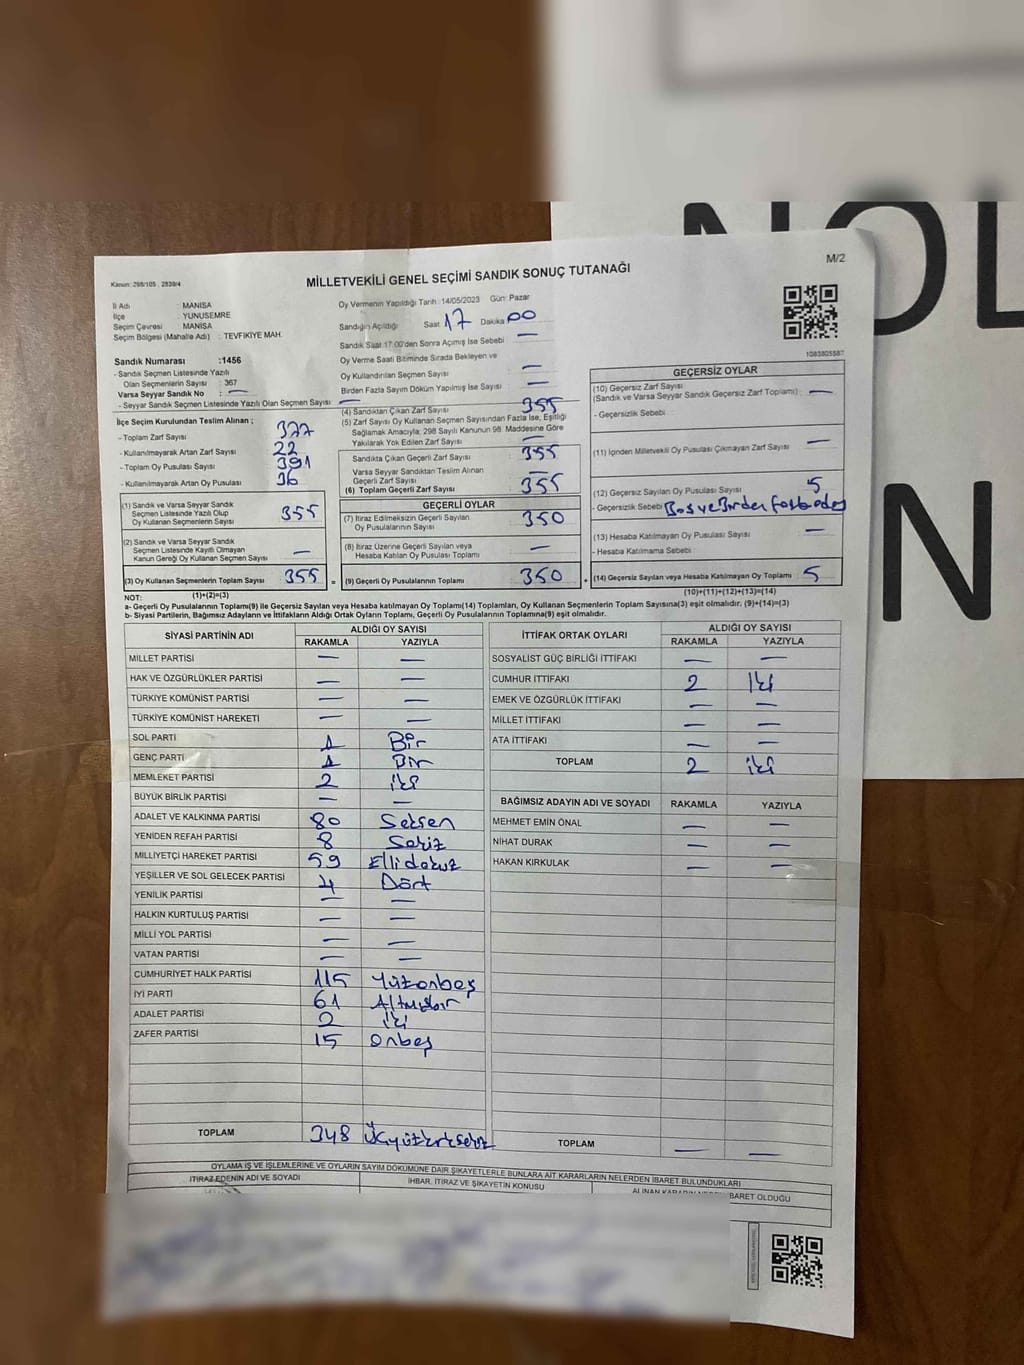 NOL
N
M/2
Kanun: 298/105 , 2839/4
MİLLETVEKİLİ GENEL SEÇİMİ SANDIK SONUÇ TUTANAĞI
İl Adı : MANİSA
İlçe : YUNUSEMRE
Seçim Çevresi : MANİSA
Seçim Bölgesi (Mahalle Adı) : TEVFİKİYE MAH.
Sandık Numarası :1456
- Sandık Seçmen Listesinde Yazılı
Olan Seçmenlerin Sayısı : 367
Varsa Seyyar Sandık No : —
- Seyyar Sandık Seçmen Listesinde Yazılı Olan Seçmen Sayısı : —
İlçe Seçim Kurulundan Teslim Alınan ;
- Toplam Zarf Sayısı 377
- Kullanılmayarak Artan Zarf Sayısı 22
- Toplam Oy Pusulası Sayısı 391
- Kullanılmayarak Artan Oy Pusulası 36
(1) Sandık ve Varsa Seyyar Sandık
Seçmen Listesinde Yazılı Olup
Oy Kullanan Seçmenlerin Sayısı 355
(2) Sandık ve Varsa Seyyar Sandık
Seçmen Listesinde Kayıtlı Olmayan
Kanun Gereği Oy Kullanan Seçmen Sayısı —
(3) Oy Kullanan Seçmenlerin Toplam Sayısı 355 =
(1)+(2)=(3)
Oy Vermenin Yapıldığı Tarih : 14/05/2023 Gün: Pazar
Sandığın Açıldığı Saat 17 Dakika 00
Sandık Saat 17:00'den Sonra Açılmış İse Sebebi —
Oy Verme Saati Bitiminde Sırada Bekleyen ve
Oy Kullandırılan Seçmen Sayısı —
Birden Fazla Sayım Döküm Yapılmış İse Sayısı —
(4) Sandıktan Çıkan Zarf Sayısı 355
(5) Zarf Sayısı Oy Kullanan Seçmen Sayısından Fazla İse, Eşitliği
Sağlamak Amacıyla; 298 Sayılı Kanunun 98. Maddesine Göre
Yakılarak Yok Edilen Zarf Sayısı —
Sandıkta Çıkan Geçerli Zarf Sayısı 355
Varsa Seyyar Sandıktan Teslim Alınan
Geçerli Zarf Sayısı —
(6) Toplam Geçerli Zarf Sayısı 355
GEÇERLİ OYLAR
(7) İtiraz Edilmeksizin Geçerli Sayılan
Oy Pusulalarının Sayısı 350
(8) İtiraz Üzerine Geçerli Sayılan veya
Hesaba Katılan Oy Pusulası Toplamı —
(9) Geçerli Oy Pusulalarının Toplamı 350 +
1083805587
GEÇERSİZ OYLAR
(10) Geçersiz Zarf Sayısı
(Sandık ve Varsa Seyyar Sandık Geçersiz Zarf Toplamı) —
- Geçersizlik Sebebi :
(11) İçinden Milletvekili Oy Pusulası Çıkmayan Zarf Sayısı —
(12) Geçersiz Sayılan Oy Pusulası Sayısı 5
- Geçersizlik Sebebi Boş ve Birden
(13) Hesaba Katılmayan Oy Pusulası Sayısı —
- Hesaba Katılmama Sebebi :
(14) Geçersiz Sayılan veya Hesaba Katılmayan Oy Toplamı 5
(10)+(11)+(12)+(13)=(14)
NOT:
a- Geçerli Oy Pusulalarının Toplamı(9) ile Geçersiz Sayılan veya Hesaba katılmayan Oy Toplamı(14) Toplamları, Oy Kullanan Seçmenlerin Toplam Sayısına(3) eşit olmalıdır. (9)+(14)=(3)
b- Siyasi Partilerin, Bağımsız Adayların ve İttifakların Aldığı Ortak Oyların Toplamı, Geçerli Oy Pusulalarının Toplamına(9) eşit olmalıdır.
SİYASİ PARTİNİN ADI ALDIĞI OY SAYISI
RAKAMLA YAZIYLA
MİLLET PARTİSİ — —
HAK VE ÖZGÜRLÜKLER PARTİSİ — —
TÜRKİYE KOMÜNİST PARTİSİ — —
TÜRKİYE KOMÜNİST HAREKETİ — —
SOL PARTİ 1 Bir
GENÇ PARTİ 1 Bir
MEMLEKET PARTİSİ 2 iki
BÜYÜK BİRLİK PARTİSİ — —
ADALET VE KALKINMA PARTİSİ 80 Seksen
YENİDEN REFAH PARTİSİ 8 Sekiz
MİLLİYETÇİ HAREKET PARTİSİ 59 Ellidokuz
YEŞİLLER VE SOL GELECEK PARTİSİ 4 Dört
YENİLİK PARTİSİ — —
HALKIN KURTULUŞ PARTİSİ — —
MİLLİ YOL PARTİSİ — —
VATAN PARTİSİ — —
CUMHURİYET HALK PARTİSİ 115 Yüzonbeş
İYİ PARTİ 61 Altmışbir
ADALET PARTİSİ 2 iki
ZAFER PARTİSİ 15 onbeş
TOPLAM 348 Üçyüzkırksekiz
İTTİFAK ORTAK OYLARI ALDIĞI OY SAYISI
RAKAMLA YAZIYLA
SOSYALİST GÜÇ BİRLİĞİ İTTİFAKI — —
CUMHUR İTTİFAKI 2 iki
EMEK VE ÖZGÜRLÜK İTTİFAKI — —
MİLLET İTTİFAKI — —
ATA İTTİFAKI — —
TOPLAM 2 iki
BAĞIMSIZ ADAYIN ADI VE SOYADI RAKAMLA YAZIYLA
MEHMET EMİN ÖNAL — —
NİHAT DURAK — —
HAKAN KIRKULAK — —
TOPLAM — —
OYLAMA İŞ VE İŞLEMLERİNE VE OYLARIN SAYIM DÖKÜMÜNE DAİR ŞİKAYETLERLE BUNLARA AİT KARARLARIN NELERDEN İBARET BULUNDUKLARI
İTİRAZ EDENİN ADI VE SOYADI İHBAR, İTİRAZ VE ŞİKAYETİN KONUSU ALINAN KARARIN NEDEN İBARET OLDUĞU